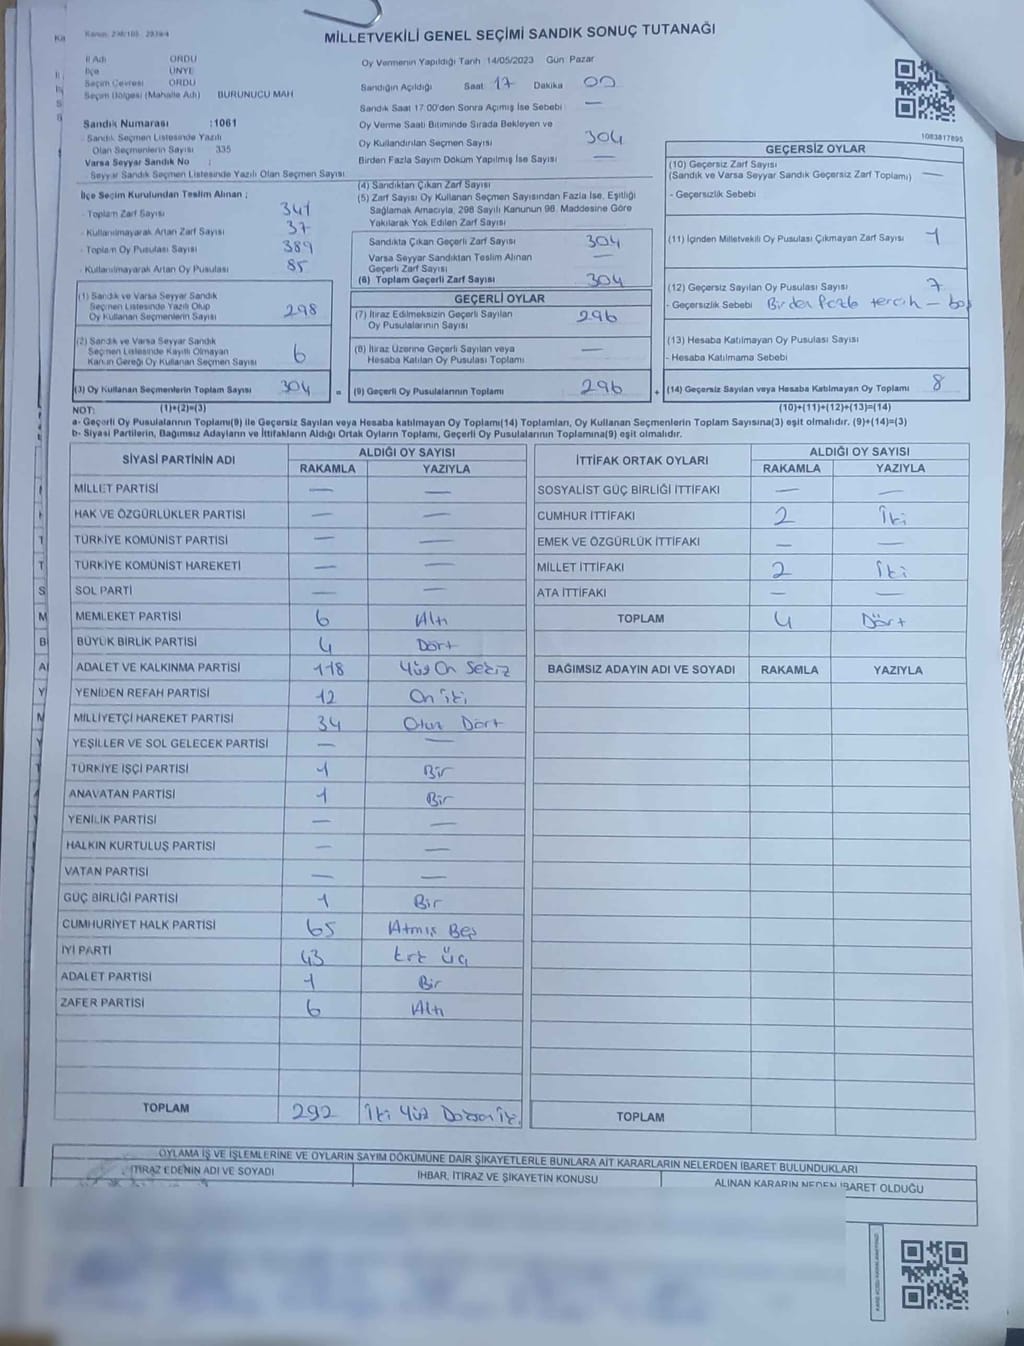 MİLLETVEKİLİ GENEL SEÇİMİ SANDIK SONUÇ TUTANAĞI
İl Adı ORDU
İlçe ÜNYE
Seçim Çevresi ORDU
Seçim Bölgesi (Mahalle Adı) BURUNUCU MAH
Sandık Numarası :1061
- Sandık Seçmen Listesinde Yazılı
Olan Seçmenlerin Sayısı 335
Varsa Seyyar Sandık No :
- Seyyar Sandık Seçmen Listesinde Yazılı Olan Seçmen Sayısı
Oy Vermenin Yapıldığı Tarih 14/05/2023 Gün Pazar
Sandığın Açıldığı Saat 17 Dakika 00
Sandık Saat 17:00'den Sonra Açılmış İse Sebebi —
Oy Verme Saati Bitiminde Sırada Bekleyen ve
Oy Kullandırılan Seçmen Sayısı 304
Birden Fazla Sayım Döküm Yapılmış İse Sayısı —
1083817895
İlçe Seçim Kurulundan Teslim Alınan ;
- Toplam Zarf Sayısı 341
- Kullanılmayarak Artan Zarf Sayısı 37
- Toplam Oy Pusulası Sayısı 389
- Kullanılmayarak Artan Oy Pusulası 85
(1) Sandık ve Varsa Seyyar Sandık
Seçmen Listesinde Yazılı Olup
Oy Kullanan Seçmenlerin Sayısı 298
(2) Sandık ve Varsa Seyyar Sandık
Seçmen Listesinde Kayıtlı Olmayan
Kanun Gereği Oy Kullanan Seçmen Sayısı 6
(3) Oy Kullanan Seçmenlerin Toplam Sayısı 304 =
(4) Sandıktan Çıkan Zarf Sayısı
(5) Zarf Sayısı Oy Kullanan Seçmen Sayısından Fazla İse, Eşitliği
Sağlamak Amacıyla, 298 Sayılı Kanunun 98. Maddesine Göre
Yakılarak Yok Edilen Zarf Sayısı
Sandıkta Çıkan Geçerli Zarf Sayısı 304
Varsa Seyyar Sandıktan Teslim Alınan
Geçerli Zarf Sayısı —
(6) Toplam Geçerli Zarf Sayısı 304
GEÇERLİ OYLAR
(7) İtiraz Edilmeksizin Geçerli Sayılan
Oy Pusulalarının Sayısı 296
(8) İtiraz Üzerine Geçerli Sayılan veya
Hesaba Katılan Oy Pusulası Toplamı —
(9) Geçerli Oy Pusulalarının Toplamı 296 +
GEÇERSİZ OYLAR
(10) Geçersiz Zarf Sayısı
(Sandık ve Varsa Seyyar Sandık Geçersiz Zarf Toplamı) —
- Geçersizlik Sebebi
(11) İçinden Milletvekili Oy Pusulası Çıkmayan Zarf Sayısı 1
(12) Geçersiz Sayılan Oy Pusulası Sayısı 7
- Geçersizlik Sebebi Birden Fazla tercih - boş
(13) Hesaba Katılmayan Oy Pusulası Sayısı
- Hesaba Katılmama Sebebi
(14) Geçersiz Sayılan veya Hesaba Katılmayan Oy Toplamı 8
NOT: (1)+(2)=(3) (10)+(11)+(12)+(13)=(14)
a- Geçerli Oy Pusulalarının Toplamı(9) ile Geçersiz Sayılan veya Hesaba katılmayan Oy Toplamı(14) Toplamları, Oy Kullanan Seçmenlerin Toplam Sayısına(3) eşit olmalıdır. (9)+(14)=(3)
b- Siyasi Partilerin, Bağımsız Adayların ve İttifakların Aldığı Ortak Oyların Toplamı, Geçerli Oy Pusulalarının Toplamına(9) eşit olmalıdır.
SİYASİ PARTİNİN ADI ALDIĞI OY SAYISI
RAKAMLA YAZIYLA
MİLLET PARTİSİ — —
HAK VE ÖZGÜRLÜKLER PARTİSİ — —
TÜRKİYE KOMÜNİST PARTİSİ — —
TÜRKİYE KOMÜNİST HAREKETİ — —
SOL PARTİ — —
MEMLEKET PARTİSİ 6 Altı
BÜYÜK BİRLİK PARTİSİ 4 Dört
ADALET VE KALKINMA PARTİSİ 118 Yüz On Sekiz
YENİDEN REFAH PARTİSİ 12 On iki
MİLLİYETÇİ HAREKET PARTİSİ 34 Otuz Dört
YEŞİLLER VE SOL GELECEK PARTİSİ — —
TÜRKİYE İŞÇİ PARTİSİ 1 Bir
ANAVATAN PARTİSİ 1 Bir
YENİLİK PARTİSİ — —
HALKIN KURTULUŞ PARTİSİ — —
VATAN PARTİSİ — —
GÜÇ BİRLİĞİ PARTİSİ 1 Bir
CUMHURİYET HALK PARTİSİ 65 Atmış Beş
İYİ PARTİ 43 kırk üç
ADALET PARTİSİ 1 Bir
ZAFER PARTİSİ 6 Altı
TOPLAM 292 İki Yüz Doksan İk
İTTİFAK ORTAK OYLARI ALDIĞI OY SAYISI
RAKAMLA YAZIYLA
SOSYALİST GÜÇ BİRLİĞİ İTTİFAKI — —
CUMHUR İTTİFAKI 2 İki
EMEK VE ÖZGÜRLÜK İTTİFAKI — —
MİLLET İTTİFAKI 2 İki
ATA İTTİFAKI — —
TOPLAM 4 Dört
BAĞIMSIZ ADAYIN ADI VE SOYADI RAKAMLA YAZIYLA
TOPLAM
OYLAMA İŞ VE İŞLEMLERİNE VE OYLARIN SAYIM DÖKÜMÜNE DAİR ŞİKAYETLERLE BUNLARA AİT KARARLARIN NELERDEN İBARET BULUNDUKLARI
İTİRAZ EDENİN ADI VE SOYADI İHBAR, İTİRAZ VE ŞİKAYETİN KONUSU ALINAN KARARIN NEDEN İBARET OLDUĞU